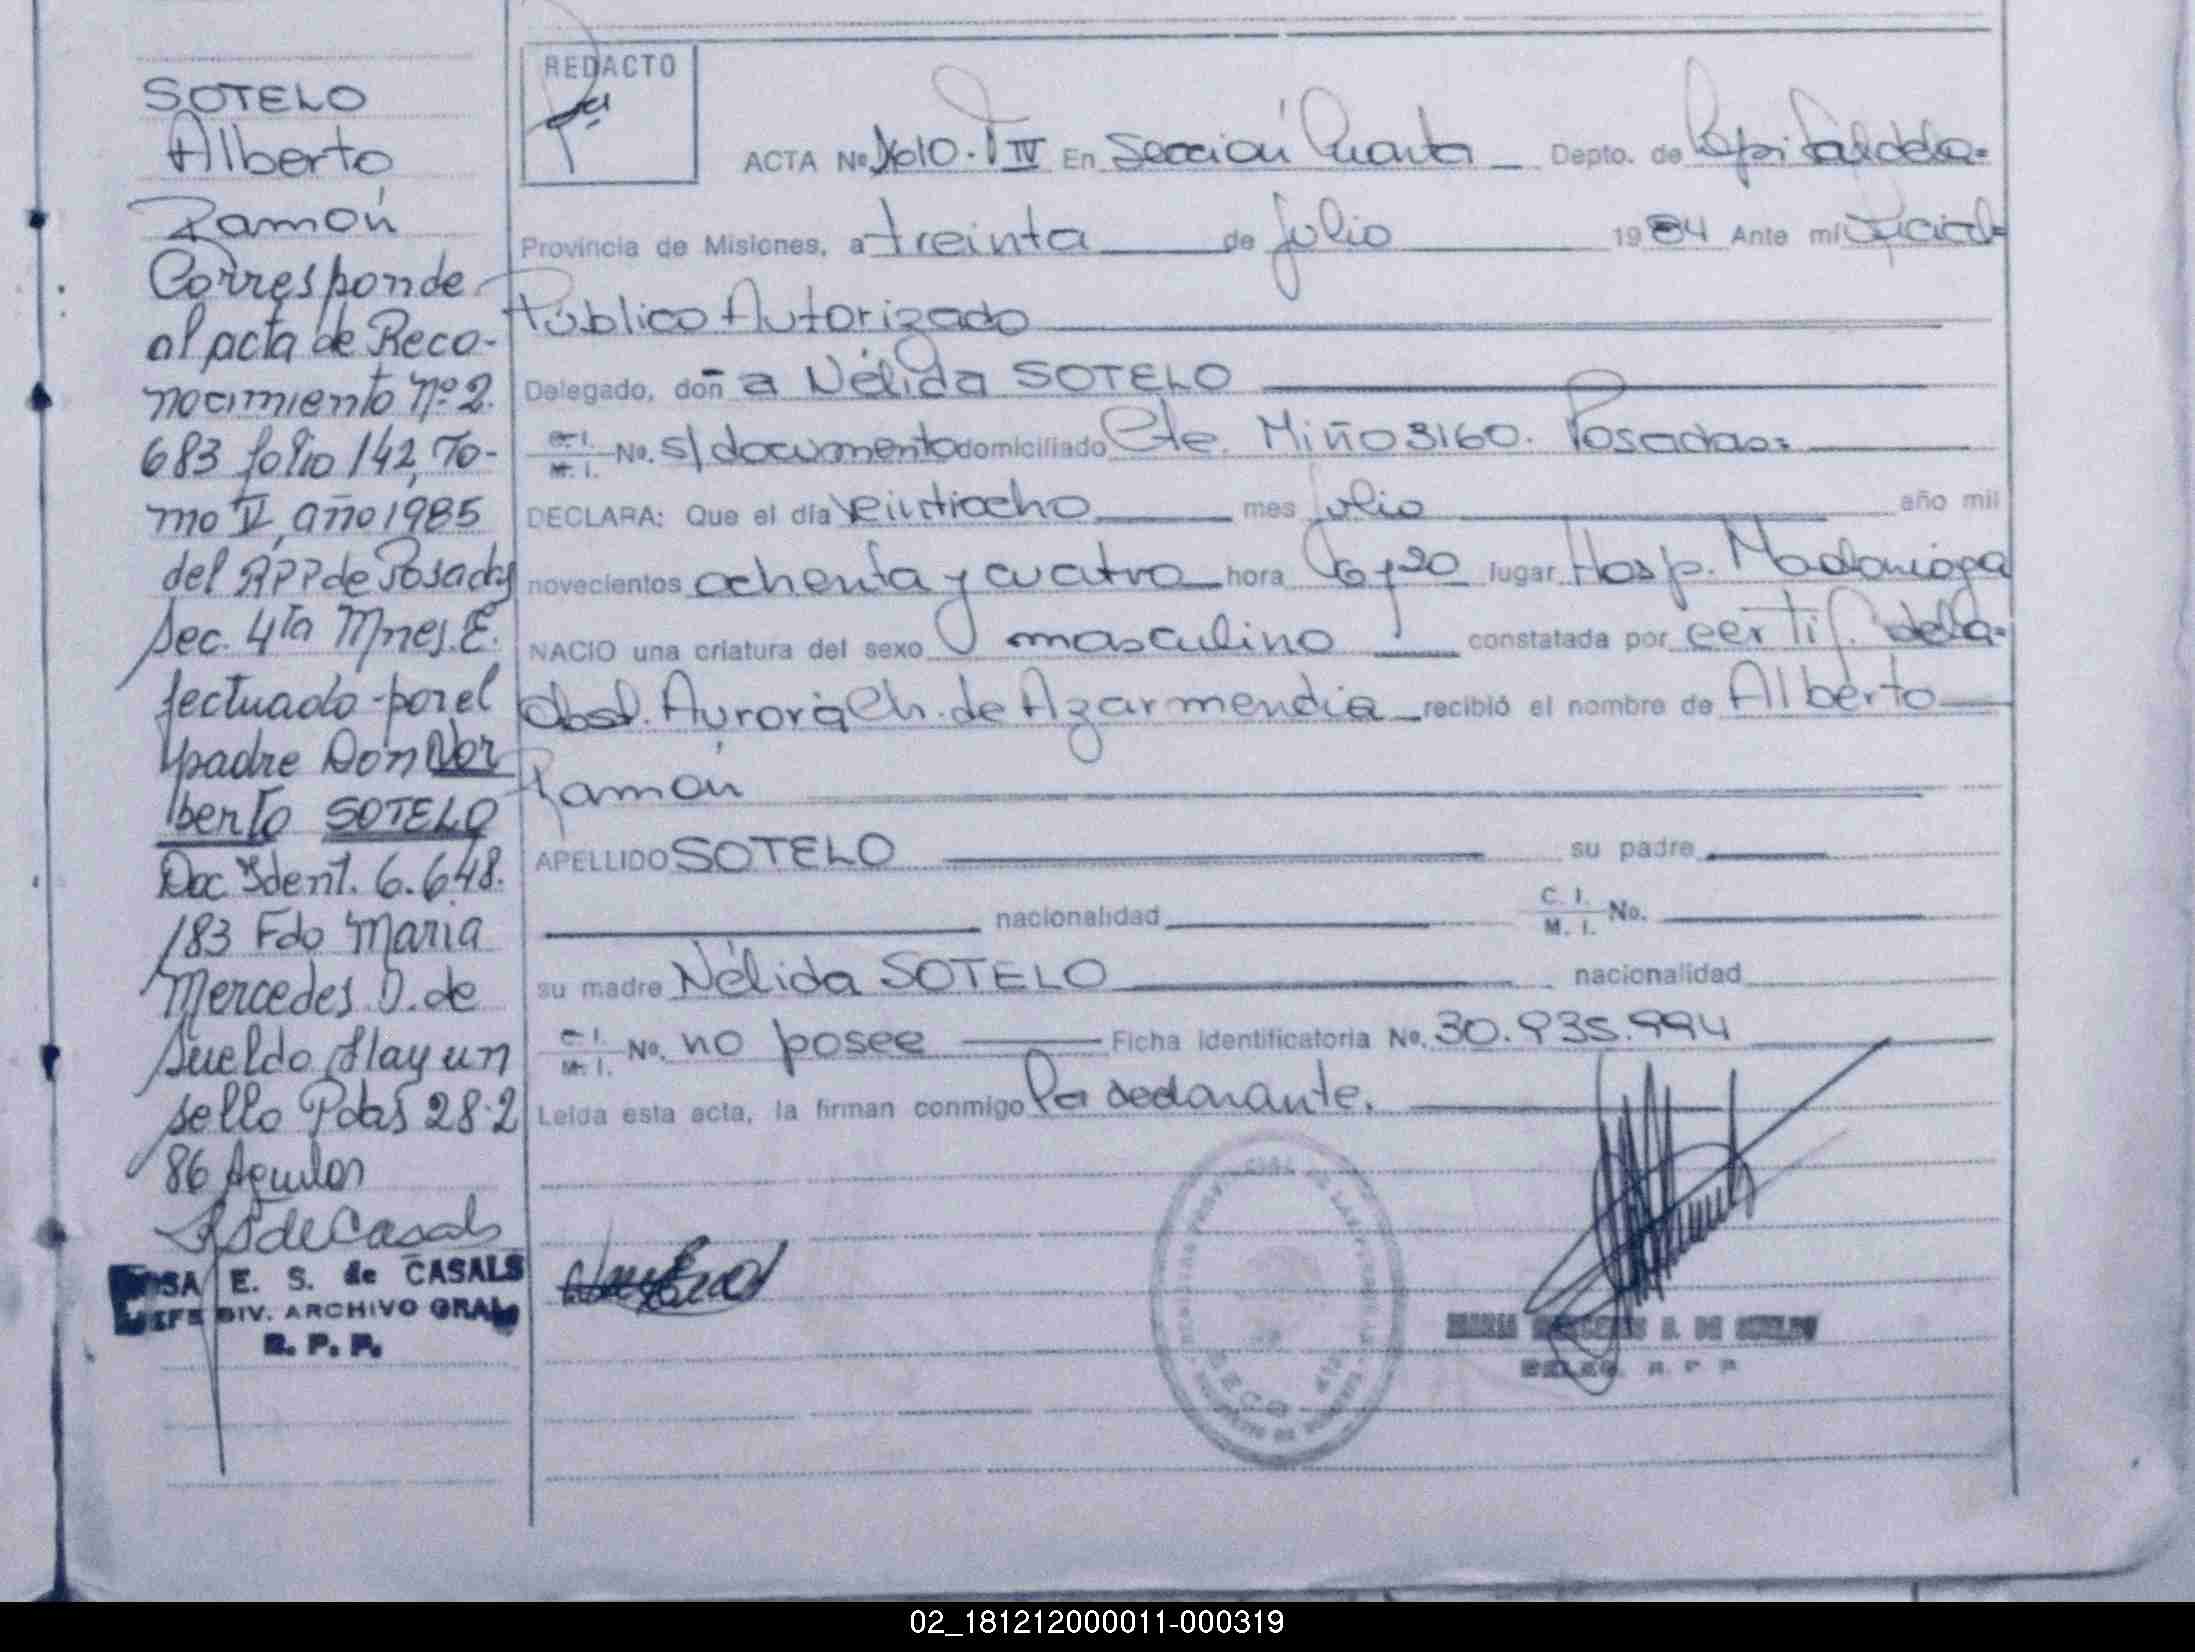 SOTELO
Alberto
Ramón
Corresponde
al acta de Reco-
nocimiento Nº 2.
683 folio 142, To-
mo V, año 1985
del RPP de Posadas
Sec. 4ta Mnes. E.
fectuado por el
padre Don Nor
berto SOTELO
Doc Ident. 6.648.
183 Fdo Maria
Mercedes D. de
Sueldo Hay un
sello Pdas 28-2
86 Aguilar
de Casals
E. S. de CASALS
JEFE DIV. ARCHIVO GRAL
R. P. P.
REDACTO
ACTA No. 1610. T IV En Sección Cuarta Depto. de Capital de la
Provincia de Misiones, a treinta de Julio 1984 Ante mí Oficial
Público Autorizado
Delegado, doña Nélida SOTELO
C. I. M. I. No. s/documento domiciliado Cte. Miño 3160. Posadas
DECLARA: Que el día veintiocho mes Julio año mil
novecientos ochenta y cuatro hora 6 y 20 lugar Hosp. Madariaga
NACIO una criatura del sexo masculino constatada por certif. de la
Obst. Aurora Ch. de Azarmendia recibió el nombre de Alberto
Ramón
APELLIDO SOTELO su padre
nacionalidad C. I. M. I. No.
su madre Nélida SOTELO nacionalidad
C. I. M. I. No. no posee Ficha Identificatoria No. 30.935.994
Leída esta acta, la firman conmigo la declarante.
DELEG. R. P. P.
02_181212000011-000319